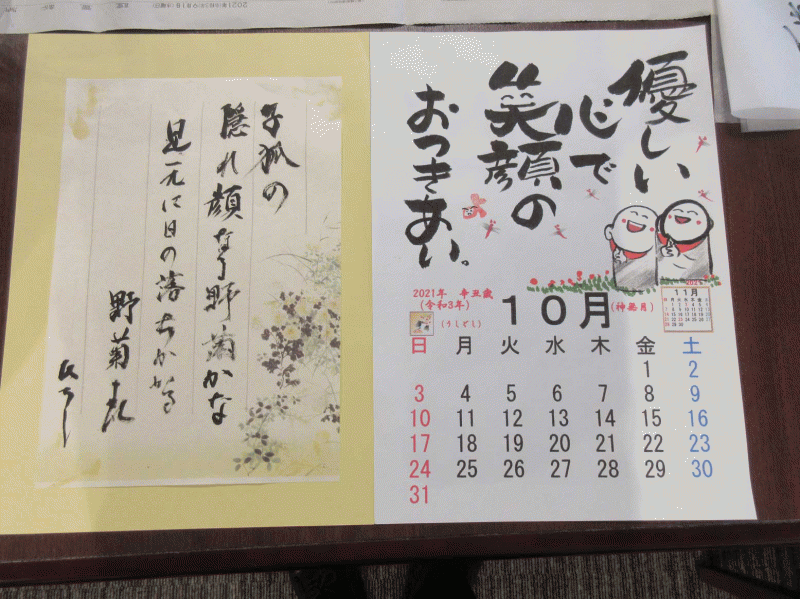 優しい
心で
笑顔の
おつきあい。
2021年 辛丑歳
(令和3年)
(うしどし)
10月
(神無月)
11月
日 月 火 水 木 金 土
1 2
3 4 5 6 7 8 9
10 11 12 13 14 15 16
17 18 19 20 21 22 23
24 25 26 27 28 29 30
31
子狐の
隠れ顔なる野菊かな
足元に日の落ちかかる
野菊